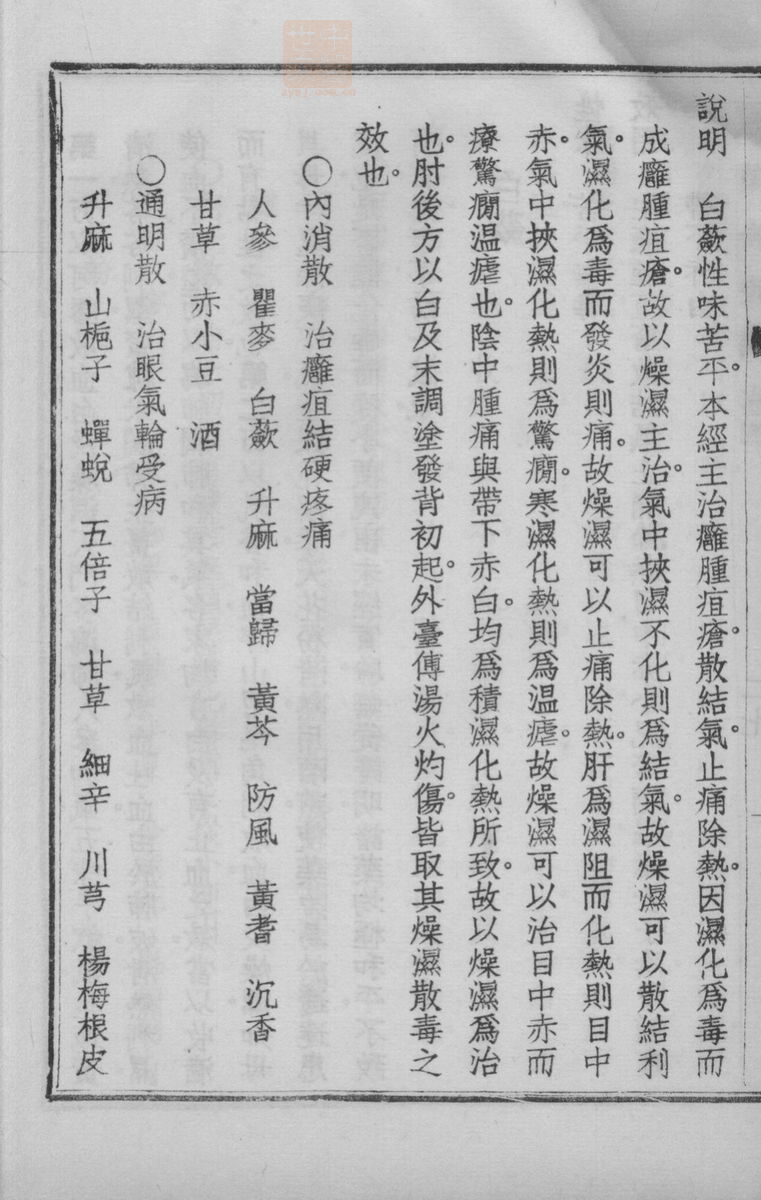 說明　白蘞性味苦平。本經主治癰腫疽瘡。散結氣。止痛除熱。因濕化爲毒而
成癰腫疽瘡。故以燥濕主治。氣中挾濕不化則爲結氣。故燥濕可以散結利
氣。濕化爲毒而發炎則痛。故燥濕可以止痛除熱。肝爲濕阻而化熱則目中
赤。氣中挾濕化熱則爲驚癇。寒濕化熱則爲温瘧。故燥濕可以治目中赤而
療驚癇温瘧也。陰中腫痛與帶下赤白。均爲積濕化熱所致。故以燥濕爲治
也。肘後方以白及末調塗發背初起。外臺傅湯火灼傷。皆取其燥濕散毒之
效也。
○內消散　治癰疽結硬疼痛
人參　瞿麥　白蘞　升麻　當歸　黃芩　防風　黃耆　沉香
甘草　赤小豆　酒
○通明散　治眼氣輪受病
升麻　山梔子　蟬蛻　五倍子　甘草　細辛　川芎　楊梅根皮